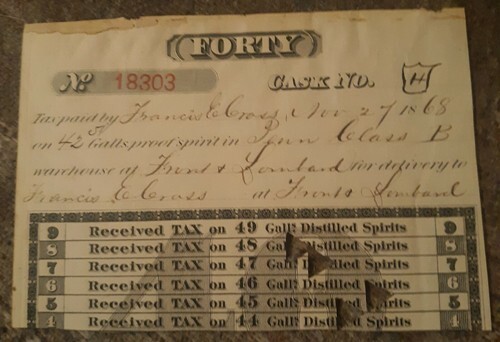 FORTY
No 18303 CASK NO. H
Tax paid by Francis E Cross, Nov 27 1868
on 42 Galls proof spirit in Penn Class B
warehouse at Front & Lombard for delivery to
Francis E Cross at Front & Lombard
9 Received TAX on 49 Galls Distilled Spirits 9
8 Received TAX on 48 Galls Distilled Spirits 8
7 Received TAX on 47 Galls Distilled Spirits 7
6 Received TAX on 46 Galls Distilled Spirits 6
5 Received TAX on 45 Galls Distilled Spirits 5
4 Received TAX on 44 Galls Distilled Spirits 4